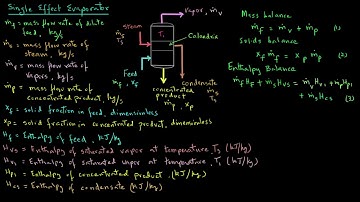 Single Effect Evaporator
ṁf = mass flow rate of dilute
feed, kg/s
ṁs = mass flow rate of
steam, kg/s
ṁv = mass flow rate of
vapors, kg/s
ṁp = mass flow rate of
concentrated product, kg/s
xf = solid fraction in feed, dimensionless
xp = solid fraction in concentrated product, dimensionless
Hf = Enthalpy of feed, kJ/kg
Hvs = Enthalpy of saturated vapor at temperature, Ts (kJ/kg)
Hv1 = Enthalpy of saturated vapor at temperature, T1 (kJ/kg)
Hp1 = Enthalpy of concentrated product, (kJ/kg)
Hcs = Enthalpy of condensate (kJ/kg)
vapor, ṁv
steam
ṁs
Ts
T1
Calandria
Feed
ṁf, xf
concentrated
product
ṁp, xp
condensate
ṁs
Ts
Mass balance
ṁf = ṁv + ṁp (1)
Solids balance
xf ṁf = xp ṁp (2)
Enthalpy Balance
ṁf Hf + ṁs Hvs = ṁv Hv1 + ṁp Hp1
+ ṁs Hcs (3)